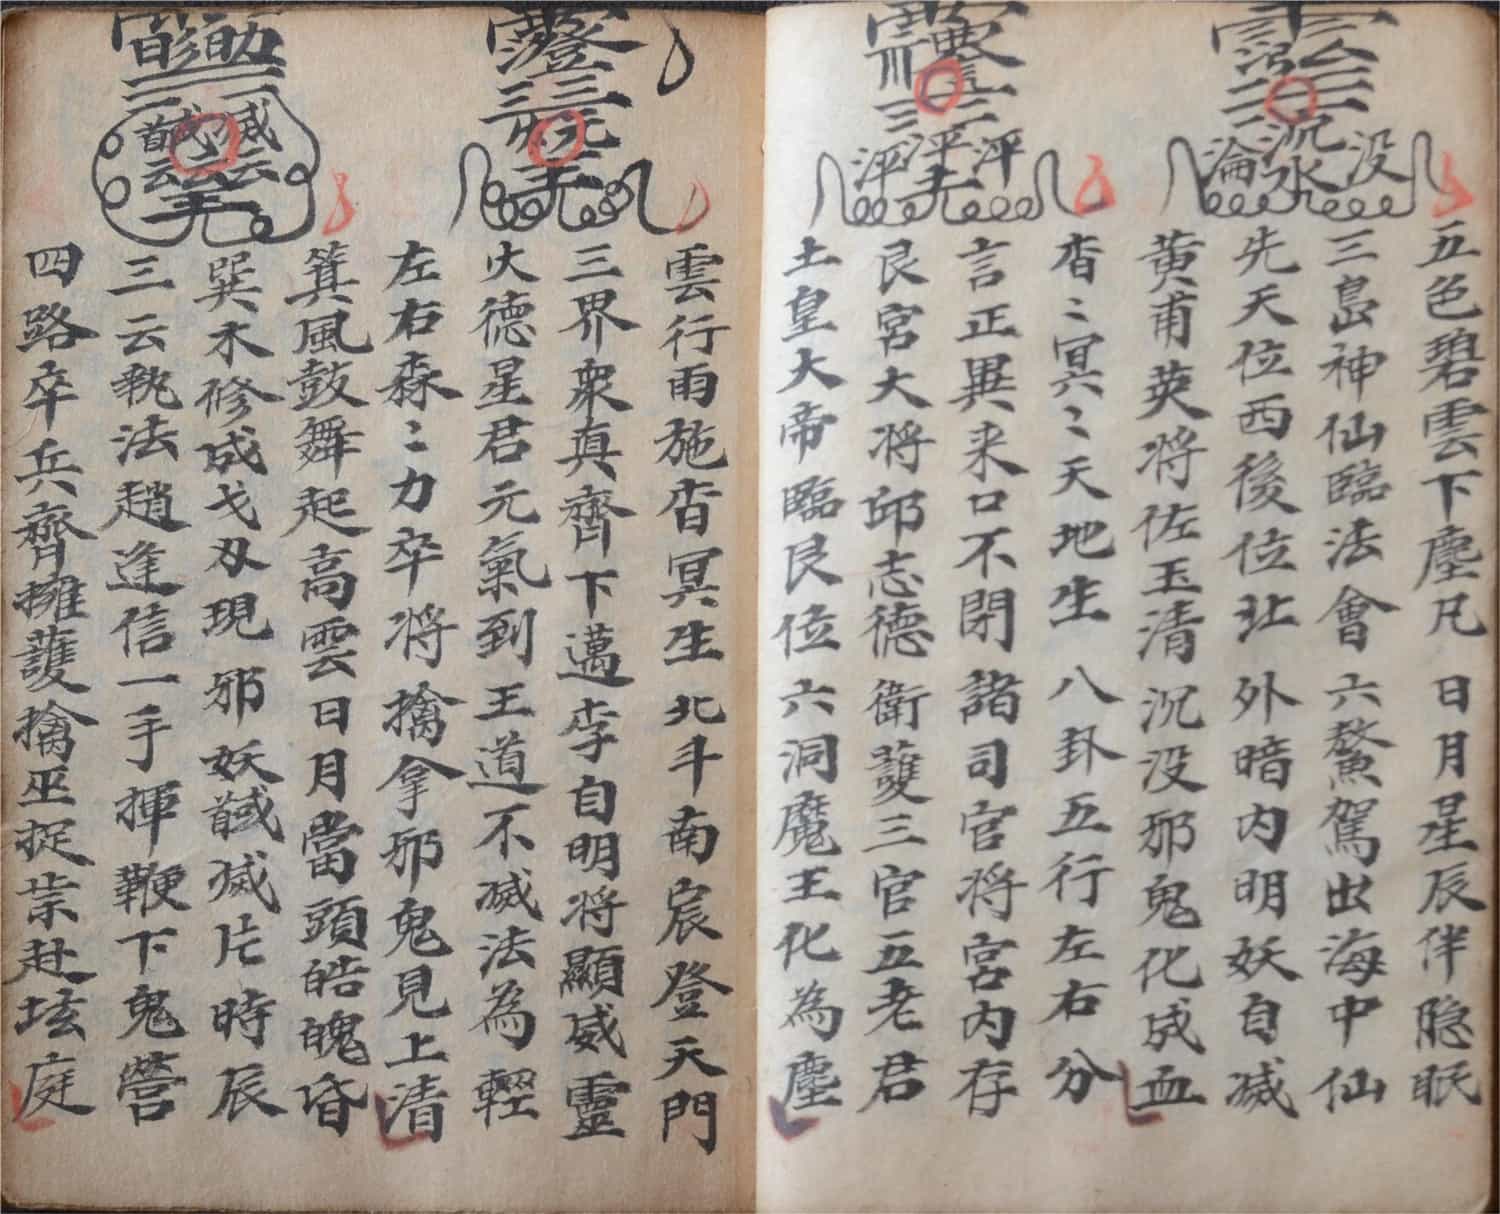 五色碧雲下塵凡 日月星辰伴隐眠
三島神仙臨法會 六鰲駕出海中仙
先天位西後位北 外暗内明妖自滅
黄甫英将佐玉清 沉没邪鬼化成血
杳〻冥〻天地生 八卦五行左右分
言正異来口不閉 諸司官将宮内存
艮宮大将邱志德 衛護三官五老君
土皇大帝臨艮位 六洞魔王化為塵
雲行雨施杳冥生 北斗南宸登天門
三界衆真齊下邁 李自明将顯威靈
火德星君元氣到 王道不滅法為輕
左右森〻力卒将 擒拿邪鬼見上清
箕風鼓舞起高雲 日月當頭皓魄昏
巽木修成戈刄現 邪妖馘滅片時辰
三云執法趙逢信 一手揮鞭下鬼營
四路卒兵齊擁護 擒巫捉祟赴坛庭
淪沉没
水
泙泙泙
馘滅